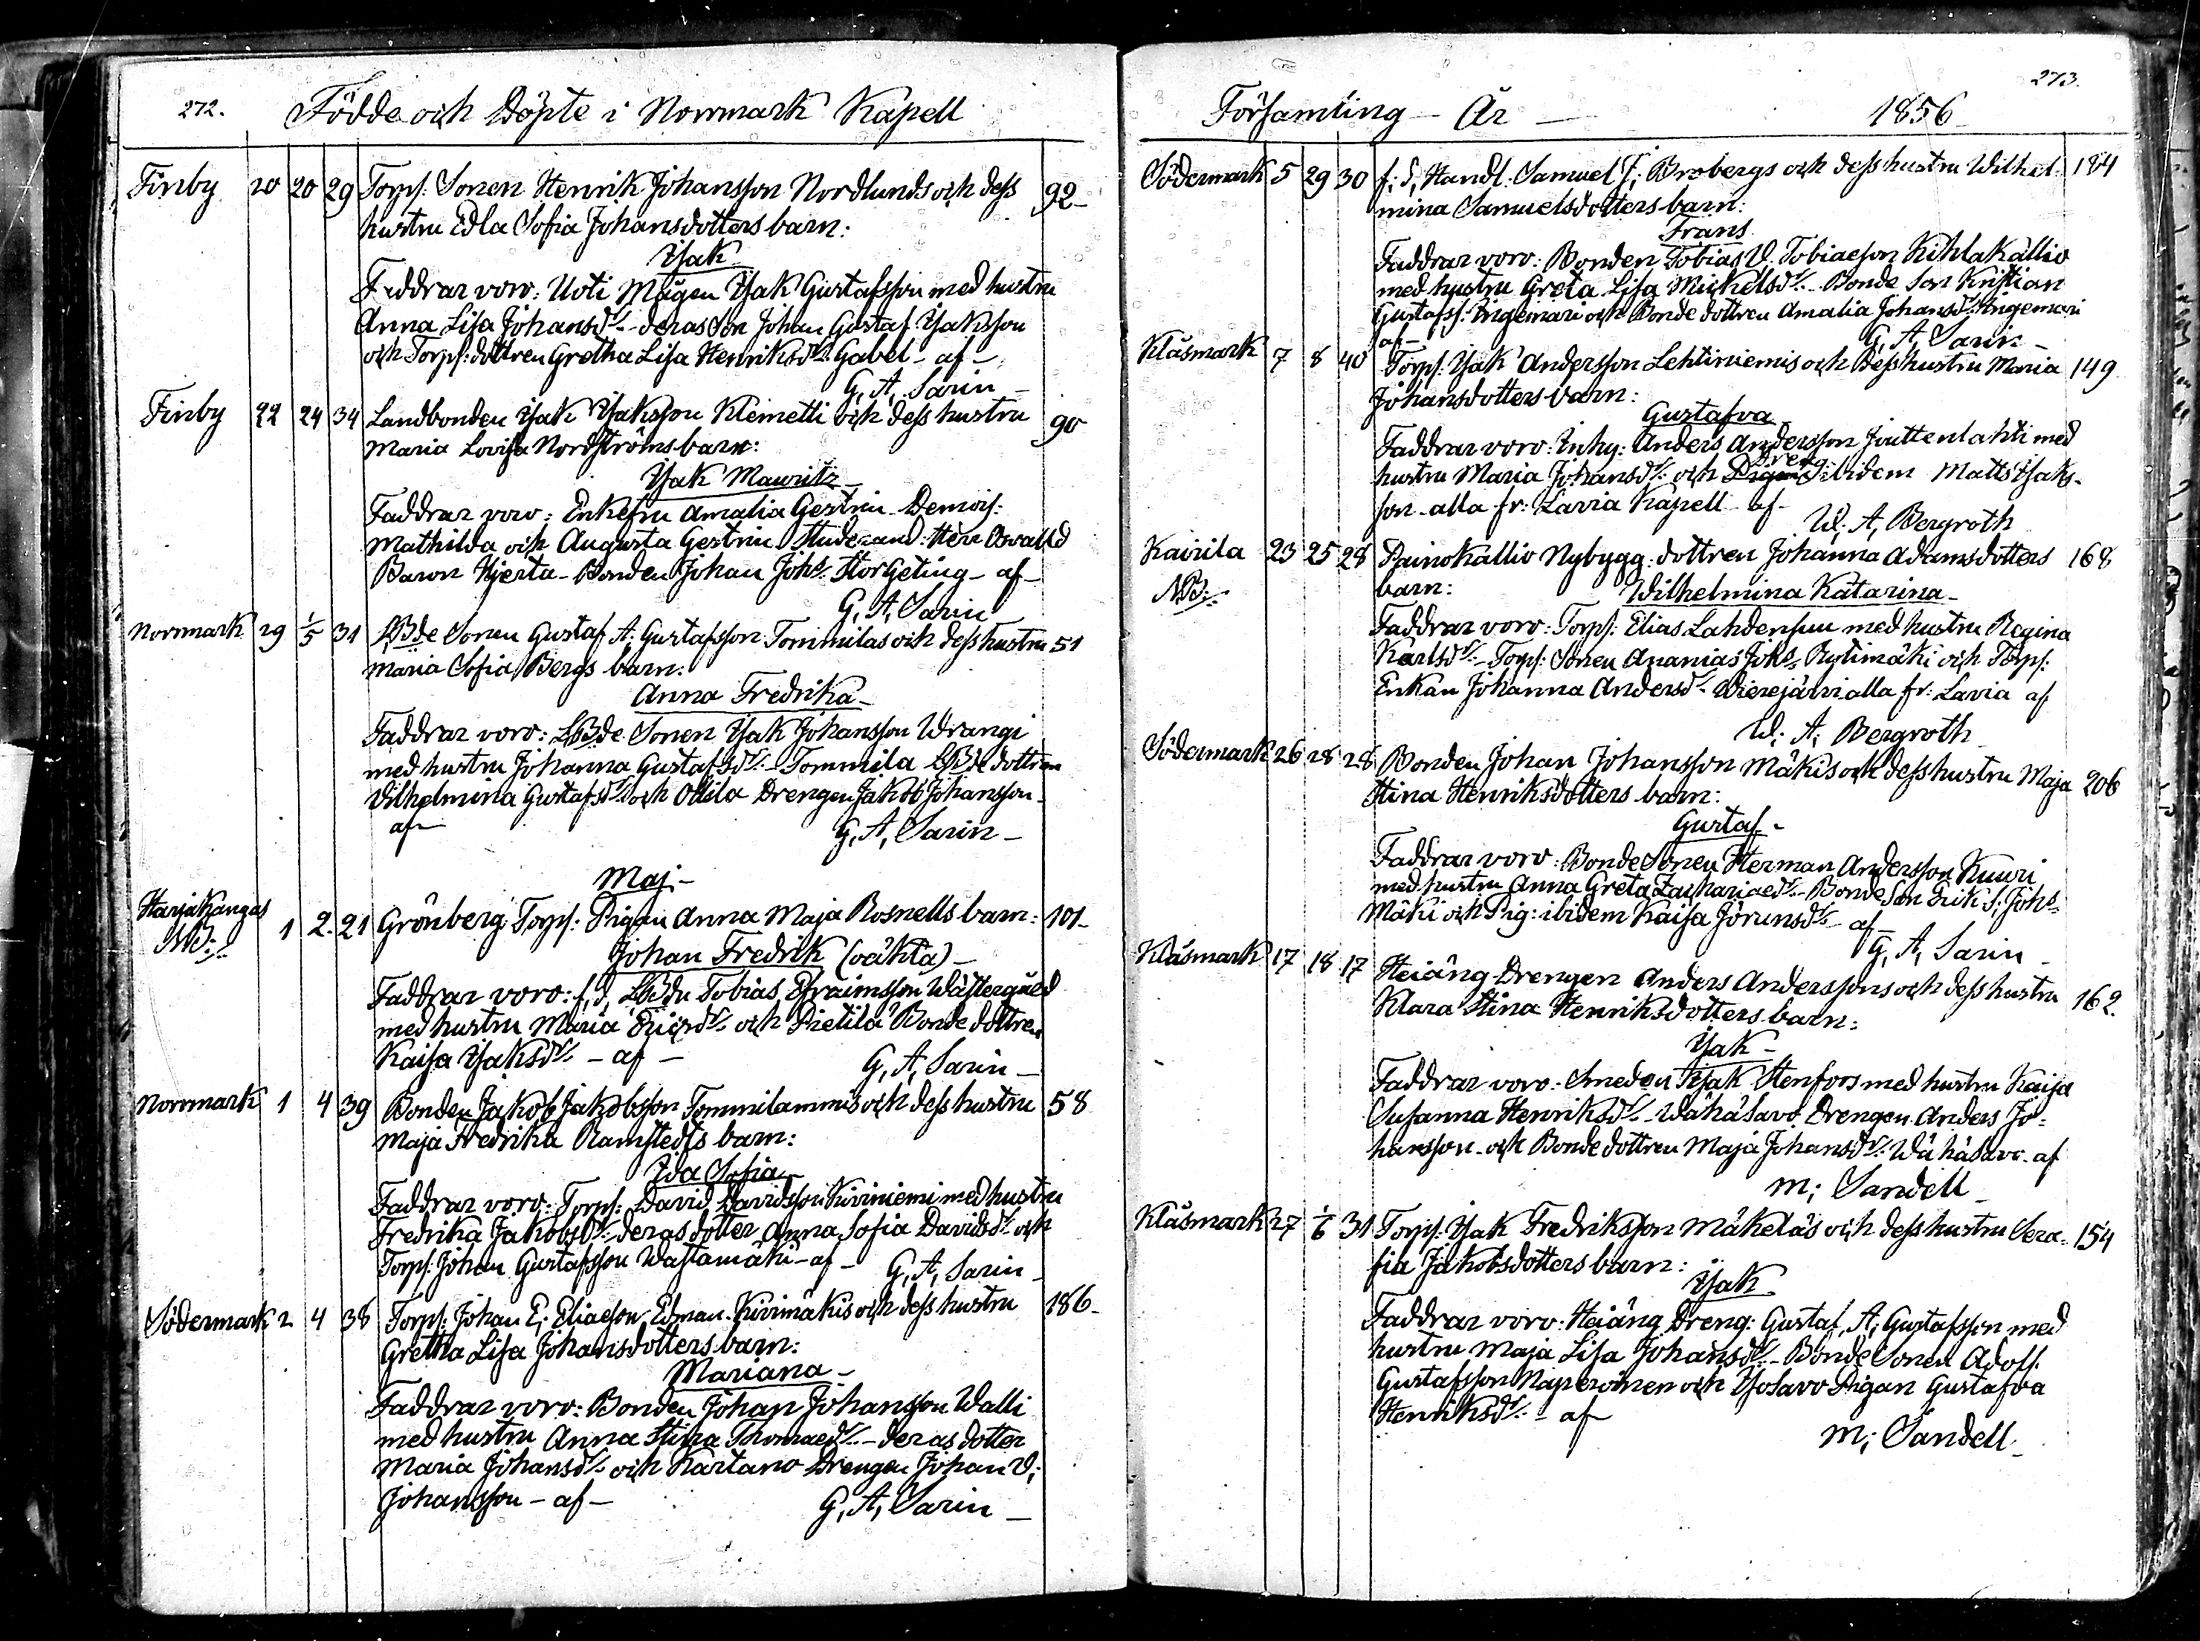 272. Födde och Döpte i Norrmark Kapell
Finby 20 20 29 Torp: Sonen Henrik Johansson Nordlunds och dess 92
hustru Edla Sofia Johansdotters barn:
Isak
Faddrar voro: Uoti Mågen Isak Gustafsson med hustru
Anna Lisa Johansdr - deras Son Johan Gustaf Isaksson
och Torp: dottren Gretha Lisa Henriksdr Gabel - af -
G, A, Sarin
Finby 22 24 34 Landbonden Isak Isaksson Klemetti och dess hustru 90
Maria Lovisa Nordströms barn:
Isak Mauritz
Faddrar voro: Enkefru Amalia Gestrin Demois:
Mathilda och Augusta Gestrin Studerand: Herr Osvalld
Baron Hjerta - Bonden Johan Johs: Storgeting - af -
G, A, Sarin
Norrmark 29 1/5 31 LBde Sonen Gustaf A: Gustafsson Tommilas och dess hustru 51
Maria Sofia Bergs barn:
Anna Fredrika
Faddrar voro: LBde Sonen Isak Johansson Wrangi
med hustru Johanna Gustafsdr - Tommila LBde dottren
Vilhelmina Gustafsdr och Ottila Drengen Jakob Johansson
af
G, A, Sarin
Maj -
Harjakangas 1 2 21 Grönberg Torp: Pigan Anna Maja Rosnells barn: 101
NB:
Johan Fredrik (oäkta)
Faddrar voro: f, d, LBdn Tobias Efraimsson Wästergård
med hustru Maria Ericsdr och Pietilä Bonde dottren
Kaisa Isaksdr - af -
G, A, Sarin
Norrmark 1 4 39 Bonden Jakob Jakobsson Tommilammis och dess hustru 58
Maja Fredrika Ramstedts barn:
Ida Sofia
Faddrar voro: Torp: David Davidsson Kiviniemi med hustru
Fredrika Jakobsdr - deras dotter Anna Sofia Davidsdr och
Torp: Johan Gustafsson Wastamäki - af -
G, A, Sarin
Södermark 2 4 38 Torp: Johan E; Eliaesson Edman Kivimäkis och dess hustru 186
Gretha Lisa Johansdotters barn:
Mariana
Faddrar voro: Bonden Johan Johansson Walli
med hustru Anna Stina Thomaedr - deras dotter
Maria Johansdr och Kartano Drengen Johan V;
Johansson - af -
G, A, Sarin
273.
Församling - År - 1856
Södermark 5 29 30 f; d; Handl: Samuel S; Brobergs och dess hustru Wilhel: 184
mina Samuelsdotters barn:
Frans
Faddrar voro: Bonden Tobias V. Tobiaesson Kihlakallio
med hustru Greta Lisa Mickelsdr - Bonde Son Kristian
Gustafss: Ingemari och Bonde dottren Amalia Johansdr Ingemari
af -
G, A, Sarin
Klåsmark 7 8 40 Torp: Isak Andersson Lehtiniemis och dess hustru Maria 149
Johansdotters barn:
Gustafva
Faddrar voro: Inhy: Anders Andersson Jouttenlahti med
hustru Maria Johansdr och Dreng ibidem Matts Isaks-
son - alla fr: Lavia Kapell af
W, A, Bergroth
Kairila 23 25 28 Painokallio Nybygg: dottren Johanna Adamsdotters 168
NB:
barn: Wilhelmina Katarina
Faddrar voro: Torp: Elias Lahdensuu med hustru Regina
Karlsdr - Torp: Sonen Ananias Johs: Rytimäki och Torp:
Enkan Johanna Andersdr Wierejärvi alla fr: Lavia af
W; A; Bergroth
Södermark 26 28 28 Bonden Johan Johansson Mäkis och dess hustru Maja 206
Stina Henriksdotters barn:
Gustaf
Faddrar voro: Bonde Sonen Herman Andersson Kuuri
med hustru Anna Greta Zachariaedr - Bonde Son Erik S; Johs:
Mäki och Pig: ibidem Kaisa Jöransdr - af -
G, A, Sarin
Klåsmark 17 18 17 Heiäng Drengen Anders Anderssons och dess hustru 162
Klara Stina Henriksdotters barn:
Isak
Faddrar voro: Smeden Isak Stenfors med hustru Kaisa
Susanna Henriksdr - Wähäsavo Drengen Anders Jo-
hansson och Bonde dottren Maja Johansdr Wähäsavo af
M; Sandell
Klåsmark 27 1/6 31 Torp: Isak Fredriksson Mäkeläs och dess hustru Sera- 154
fia Jakobsdotters barn:
Isak
Faddrar voro: Heiäng Dreng: Gustaf A; Gustafsson med
hustru Maja Lisa Johansdr - Bonde Sonen Adolf
Gustafsson Naperoinen och Isosavo Pigan Gustafva
Henriksdr - af
M; Sandell